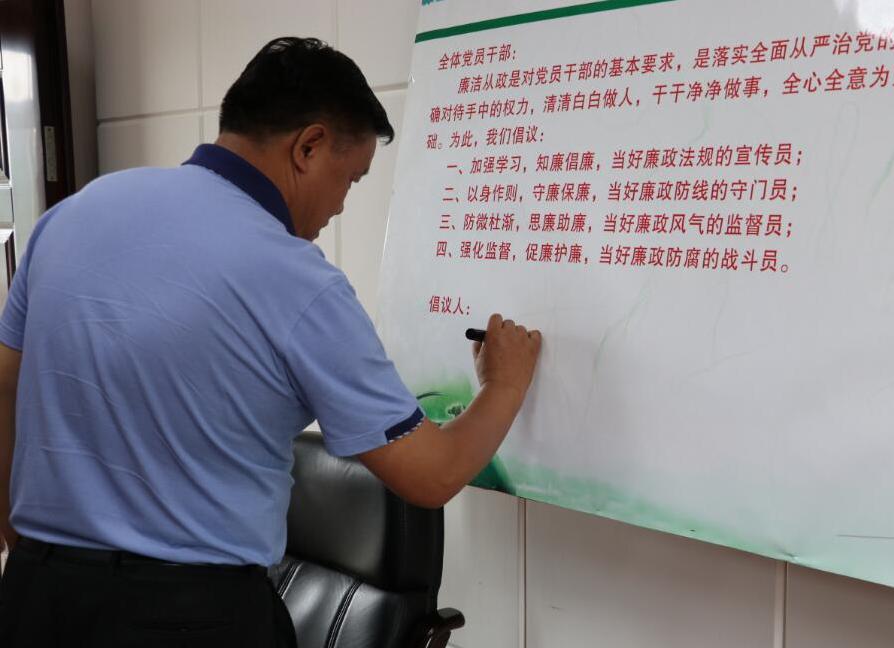 全体党员干部：
廉洁从政是对党员干部的基本要求，是落实全面从严治党的
确对待手中的权力，清清白白做人，干干净净做事，全心全意为
础。为此，我们倡议：
一、加强学习，知廉倡廉，当好廉政法规的宣传员；
二、以身作则，守廉保廉，当好廉政防线的守门员；
三、防微杜渐，思廉助廉，当好廉政风气的监督员；
四、强化监督，促廉护廉，当好廉政防腐的战斗员。
倡议人：